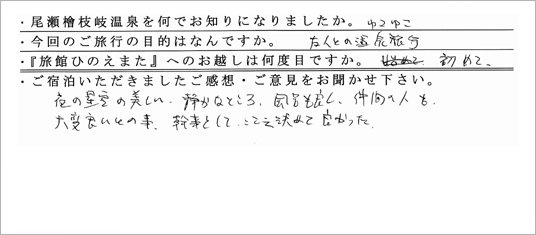 ・尾瀬檜枝岐温泉を何でお知りになりましたか。 ゆこゆこ
・今回のご旅行の目的はなんですか。 友人との温泉旅行
・『旅館ひのえまた』へのお越しは何度目ですか。 初めて、
・ご宿泊いただきましたご感想・ご意見をお聞かせ下さい。
夜の星空の美しい、静かなところ、も良し、仲間の人も、
大変良いとの事、幹事として、ここに決めて良かった。